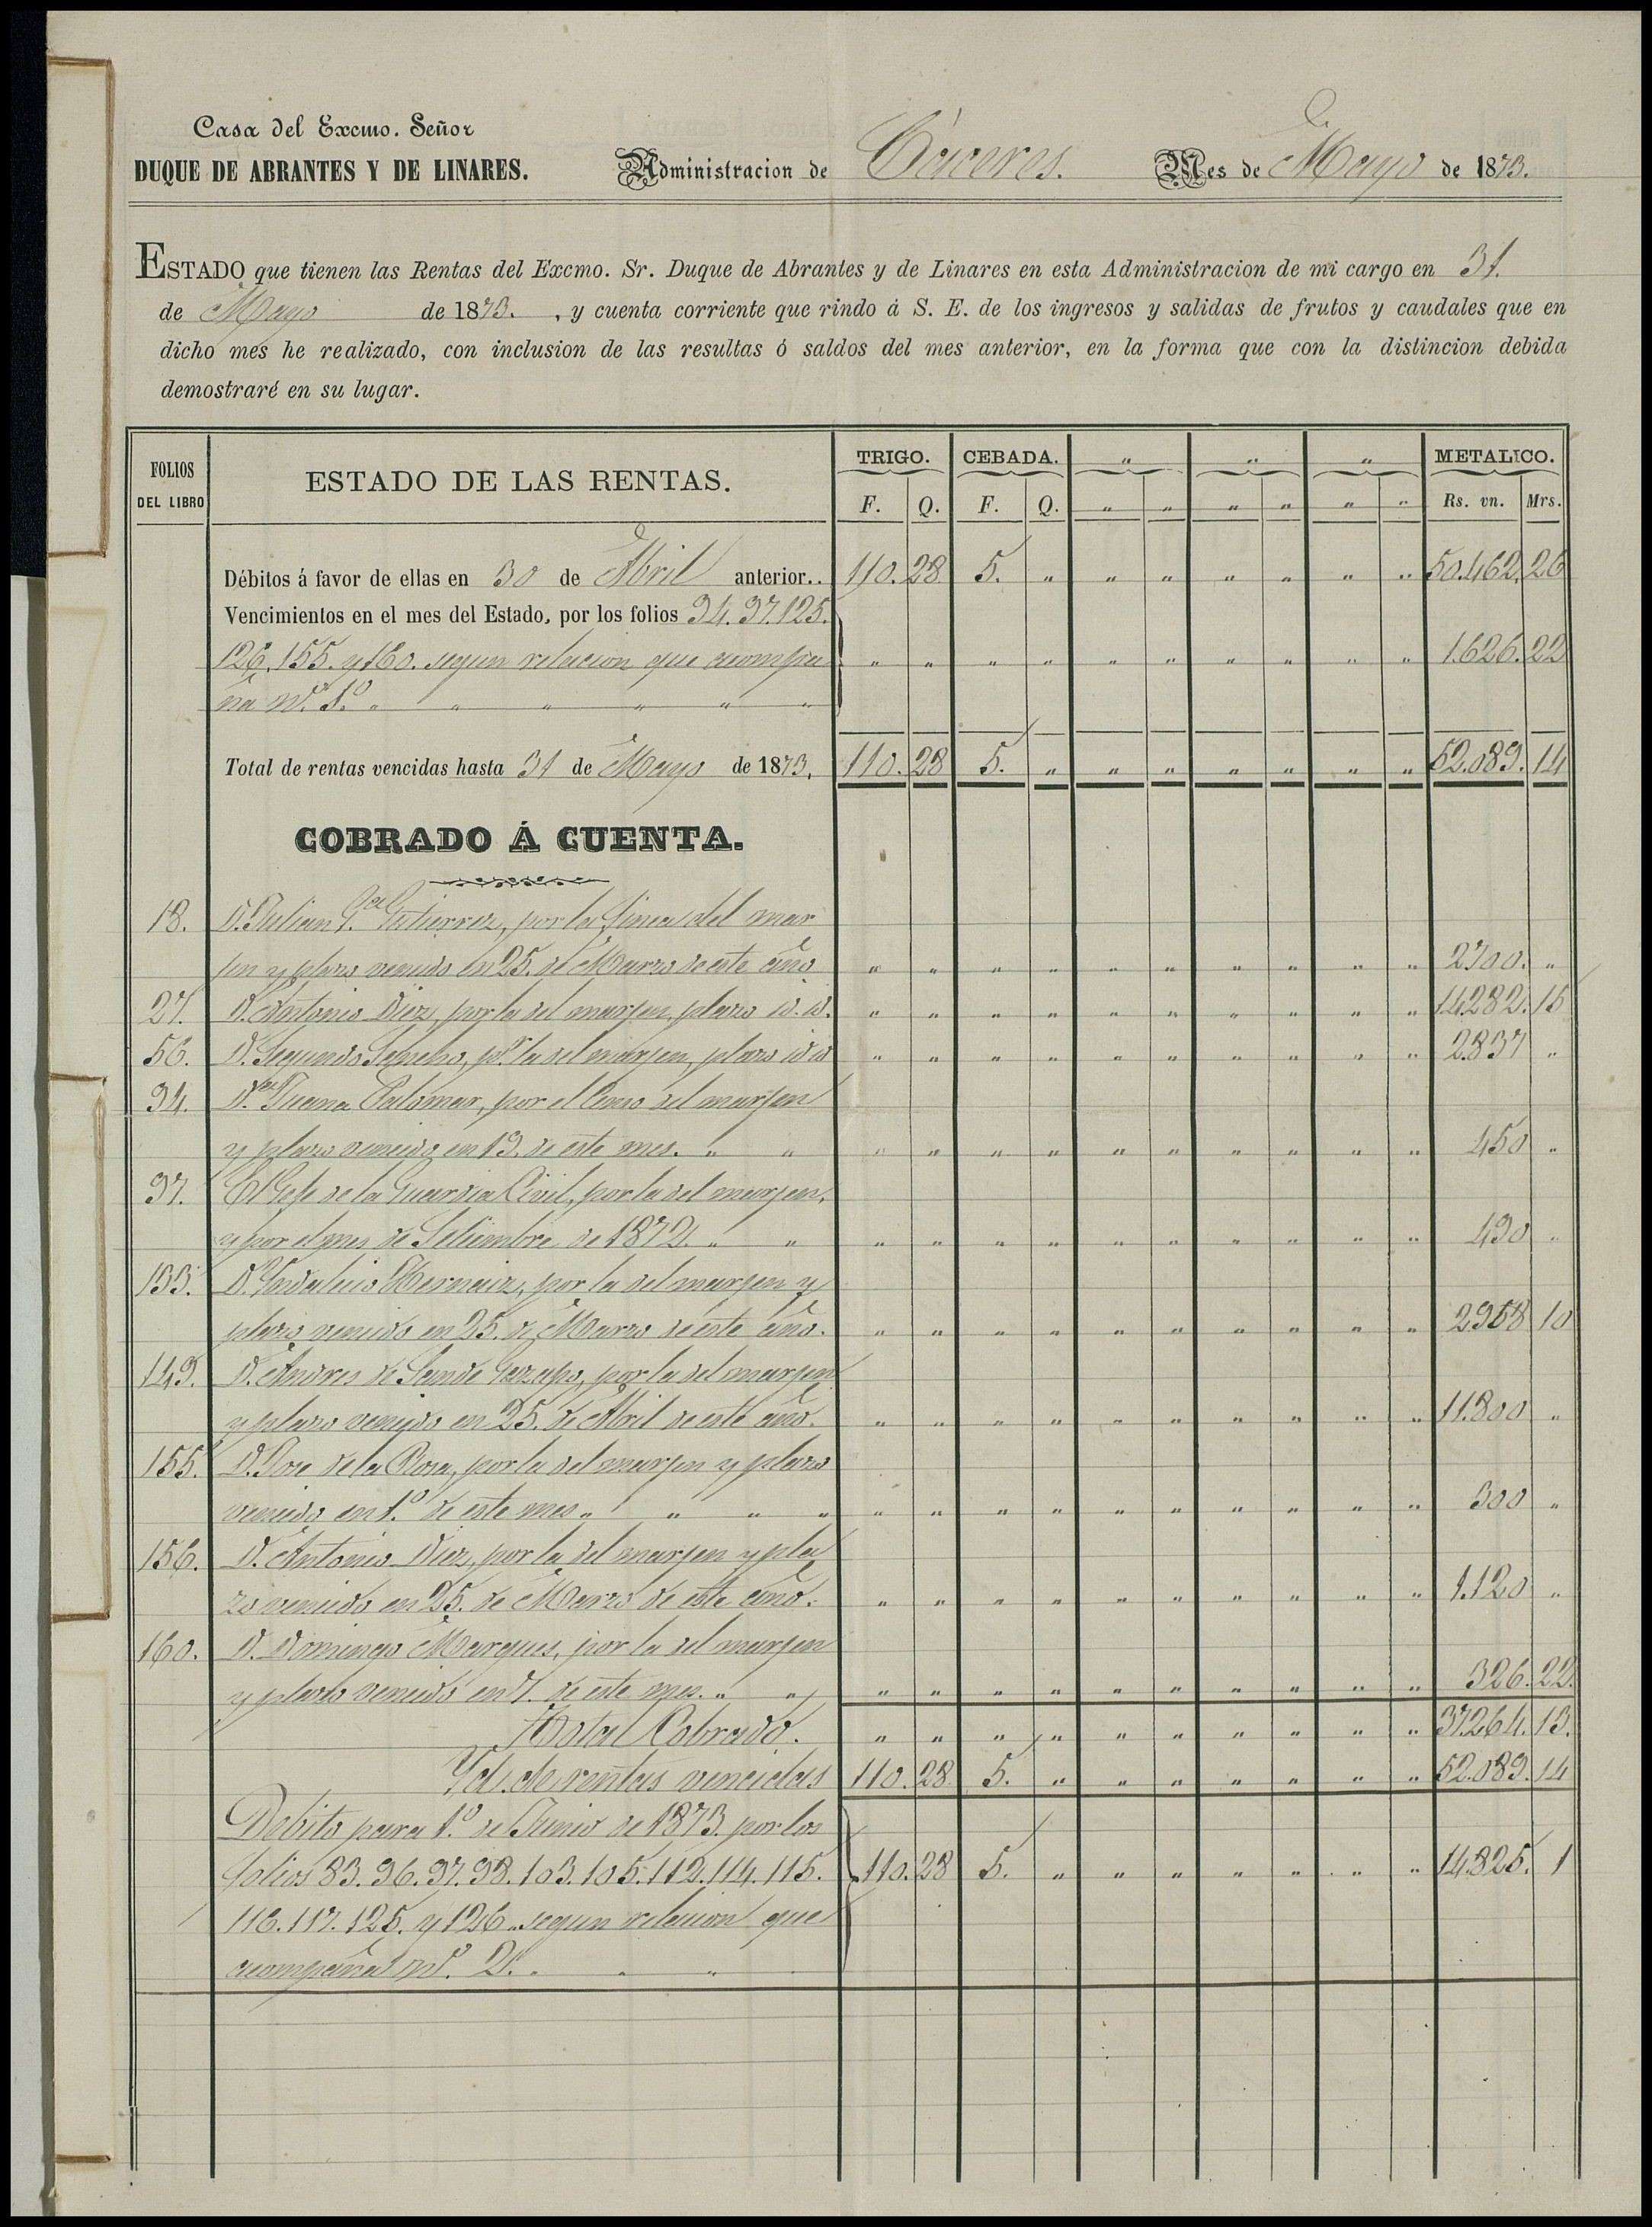 Casa del Excmo. Señor
DUQUE DE ABRANTES Y DE LINARES. Administracion de Cáceres. Mes de Mayo de 1873.
ESTADO que tienen las Rentas del Excmo. Sr. Duque de Abrantes y de Linares en esta Administracion de mi cargo en 31.
de Mayo de 1873. , y cuenta corriente que rindo á S. E. de los ingresos y salidas de frutos y caudales que en
dicho mes he realizado, con inclusion de las resultas ó saldos del mes anterior, en la forma que con la distincion debida
demostraré en su lugar.
FOLIOS DEL LIBRO ESTADO DE LAS RENTAS. TRIGO. CEBADA. " " " METALICO.
F. Q. F. Q. " " " " " " Rs. vn. Mrs.
Débitos á favor de ellas en 30 de Abril anterior.. 110. 28 5. " " " " " " " 50.462. 26
Vencimientos en el mes del Estado, por los folios 94. 97. 125.
126. 155. y 160. segun relacion que acompa " " " " " " " " " " 1.626. 22
ña nº. 1º " " " " " "
Total de rentas vencidas hasta 31 de Mayo de 1873, 110. 28 5. " " " " " " " 52.089. 14
COBRADO Á CUENTA.
18. D. Julian Gutierrez, por la finca del mar
jen y plazo vencido en 25. de Marzo de este año " " " " " " " " " " 2700. "
27. D. Antonio Diez, por la del marjen, plazo id. id. " " " " " " " " " " 14.282. 15
56. D. Segundo, pr. la del marjen, plazo id id " " " " " " " " " " 2.837 "
94. Dª Juana Palomar, por el Censo del marjen
y plazo vencido en 19. de este mes. " " " " " " " " " " " " 450 "
97. El Gefe de la Guardia Civil, por la del marjen,
y por el mes de Setiembre de 1872. " " " " " " " " " " " " 490 "
133. D. Yndalecio Hernaiz, por la del marjen y
plazo vencido en 25. de Marzo de este año. " " " " " " " " " " 2958 10
149. D. Andres de Sande, por la del marjen
y plazo vencido en 25. de Abril de este año. " " " " " " " " " " 11.800 "
155. D. Jose de la Rosa, por la del marjen y plazo
vencido en 1º de este mes " " " " " " " " " " " " " " 300 "
156. D. Antonio Diez, por la del marjen y pla
zo vencido en 25. de Marzo de este año. " " " " " " " " " " 1.120 "
160. D. Domingo Marques, por la del marjen
y plazo vencido en 7. de este mes. " " " " " " " " " " " " 326. 22.
Total Cobrado. " " " " " " " " " " 37.264. 13.
Yd. de rentas vencidas 110. 28. 5. " " " " " " " 52.089. 14
Debito para 1º de Junio de 1873. por los
folios 83. 96. 97. 98. 103. 105. 112. 114. 115. 110. 28 5. " " " " " " " 14.825. 1
116. 117. 125. y 126 segun relacion que
acompaña nº. 2. " " "